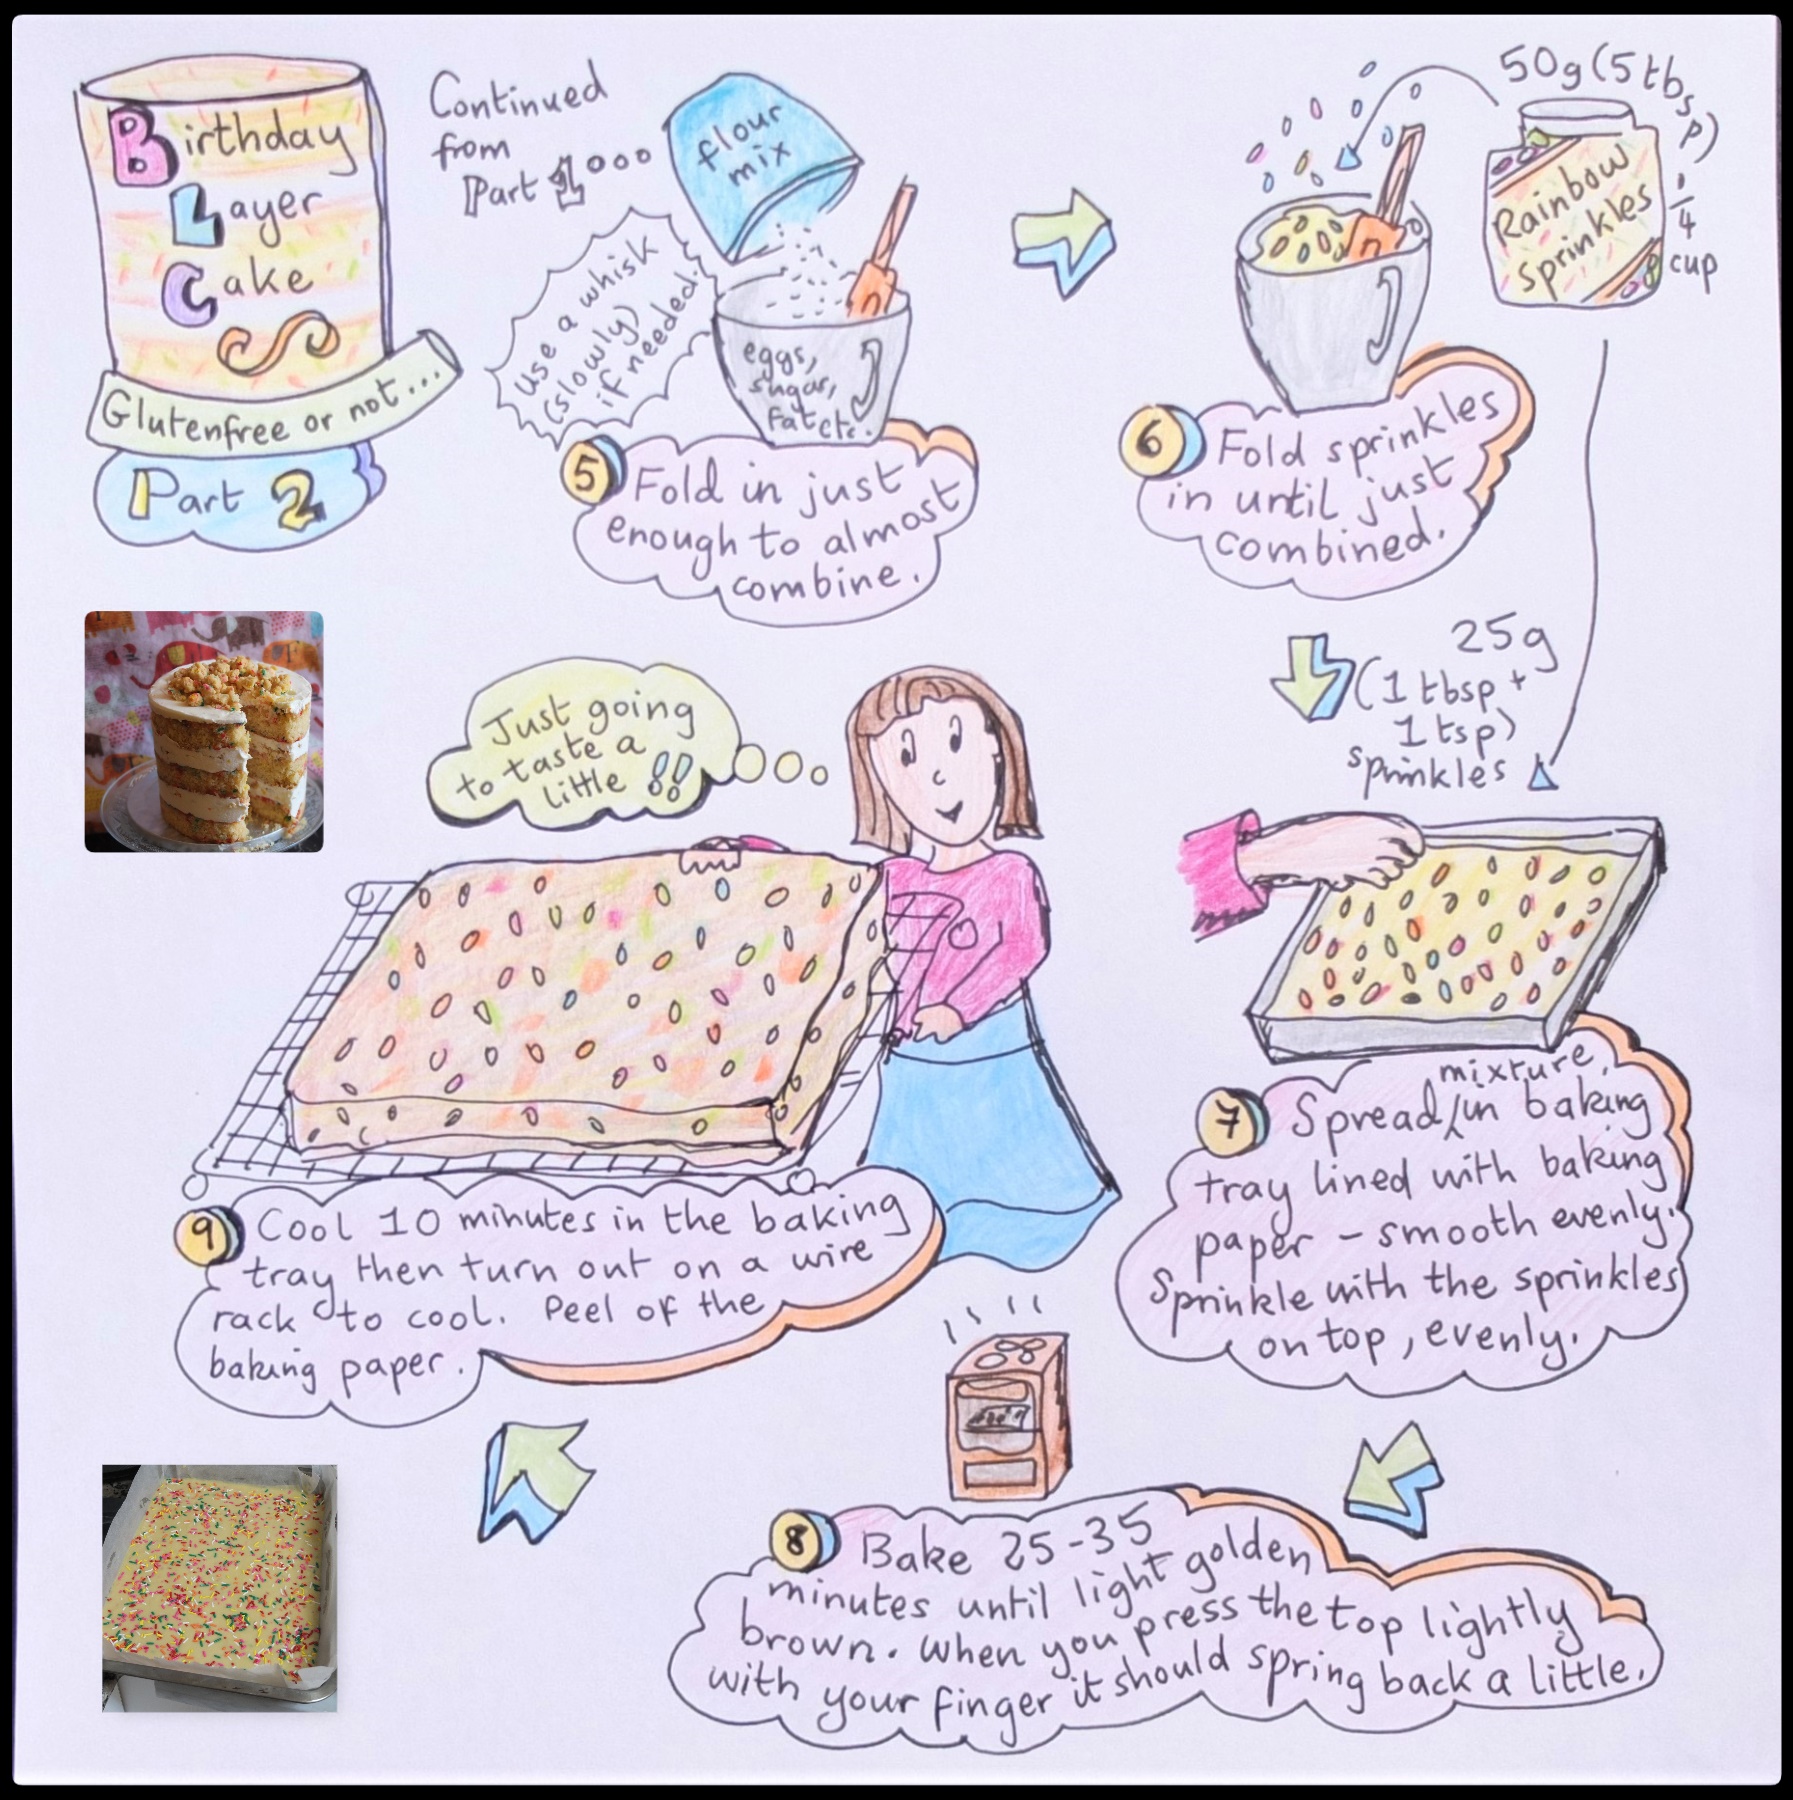 Birthday
Layer
Cake
Glutenfree or not...
Part 2
Continued
from
Part 1ooo
flour
mix
Use a whisk
(slowly)
if needed.
eggs,
sugar,
fat etc.
5 Fold in just
enough to almost
combine.
50g (5 tbsp)
1/4
cup
Rainbow
Sprinkles
6 Fold sprinkles
in until just
combined.
25g
(1 tbsp +
1 tsp)
sprinkles
mixture,
7 Spread in baking
tray lined with baking
paper - smooth evenly.
Sprinkle with the sprinkles
on top, evenly.
8 Bake 25-35
minutes until light golden
brown. When you press the top lightly
with your finger it should spring back a little.
Just going
to taste a
little !!
9 Cool 10 minutes in the baking
tray then turn out on a wire
rack to cool. Peel of the
baking paper.